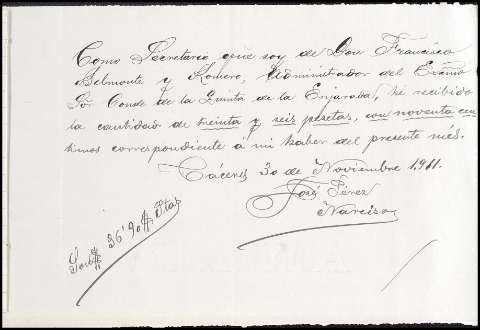 Como Secretario que soy de Don Francisco
Belmonte y Romero, Administrador del Excmo
Sor Conde de la Quinta de la Enjarada, hé recibido
la cantidad de treinta y seis pesetas, con noventa cen
timos correspondiente á mi haber del presente més.
Cáceres 30 de Noviembre 1,911.
José Pérez
Narciso
Son # 36'90 # Ptas